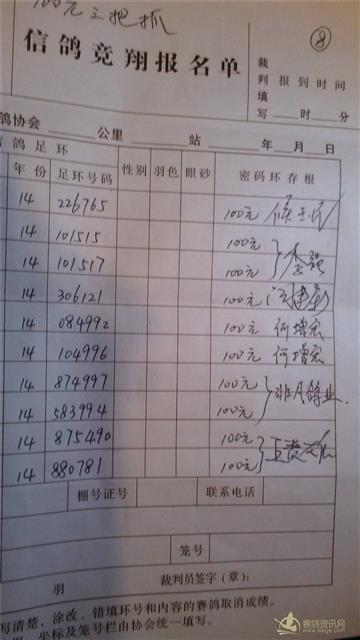 100元三把抓
⑧
信鸽竞翔报名单
裁
判 报到时间
填
写 时 分
鸽协会 公里 站 年 月 日
信鸽足环
年份 足环号码 性别 羽色 眼砂 密码环存根
14 226765 100元
14 101515 100元
14 101517 100元
14 306121 100元
14 084992 100元 何增宏
14 104996 100元 何增宏
14 874997 100元 非凡鸽业
14 583994 100元
14 875490 100元
14 880781 100元
棚号证号 联系电话
笼号
羽 裁判员签字(章):
写清楚,涂改、错填环号和内容的赛鸽取消成绩。
坐标及笼号栏由协会统一填写。
赛鸽资讯网
www.saige.com